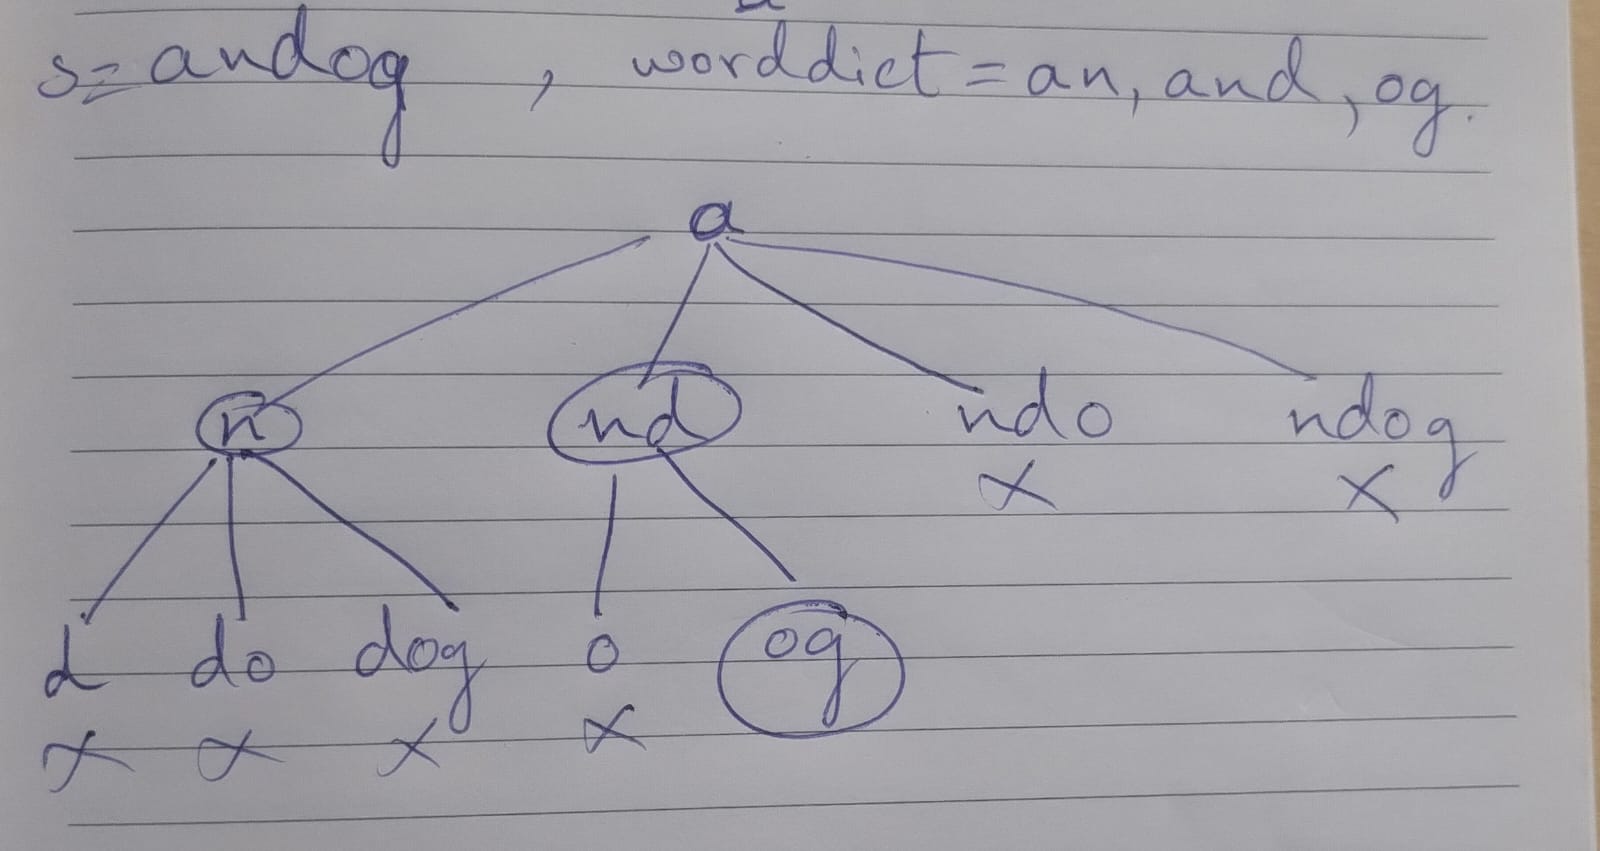 s= andog , worddict = an, and, og.
a
n nd ndo ndog
x x
d do dog o og
x x x x